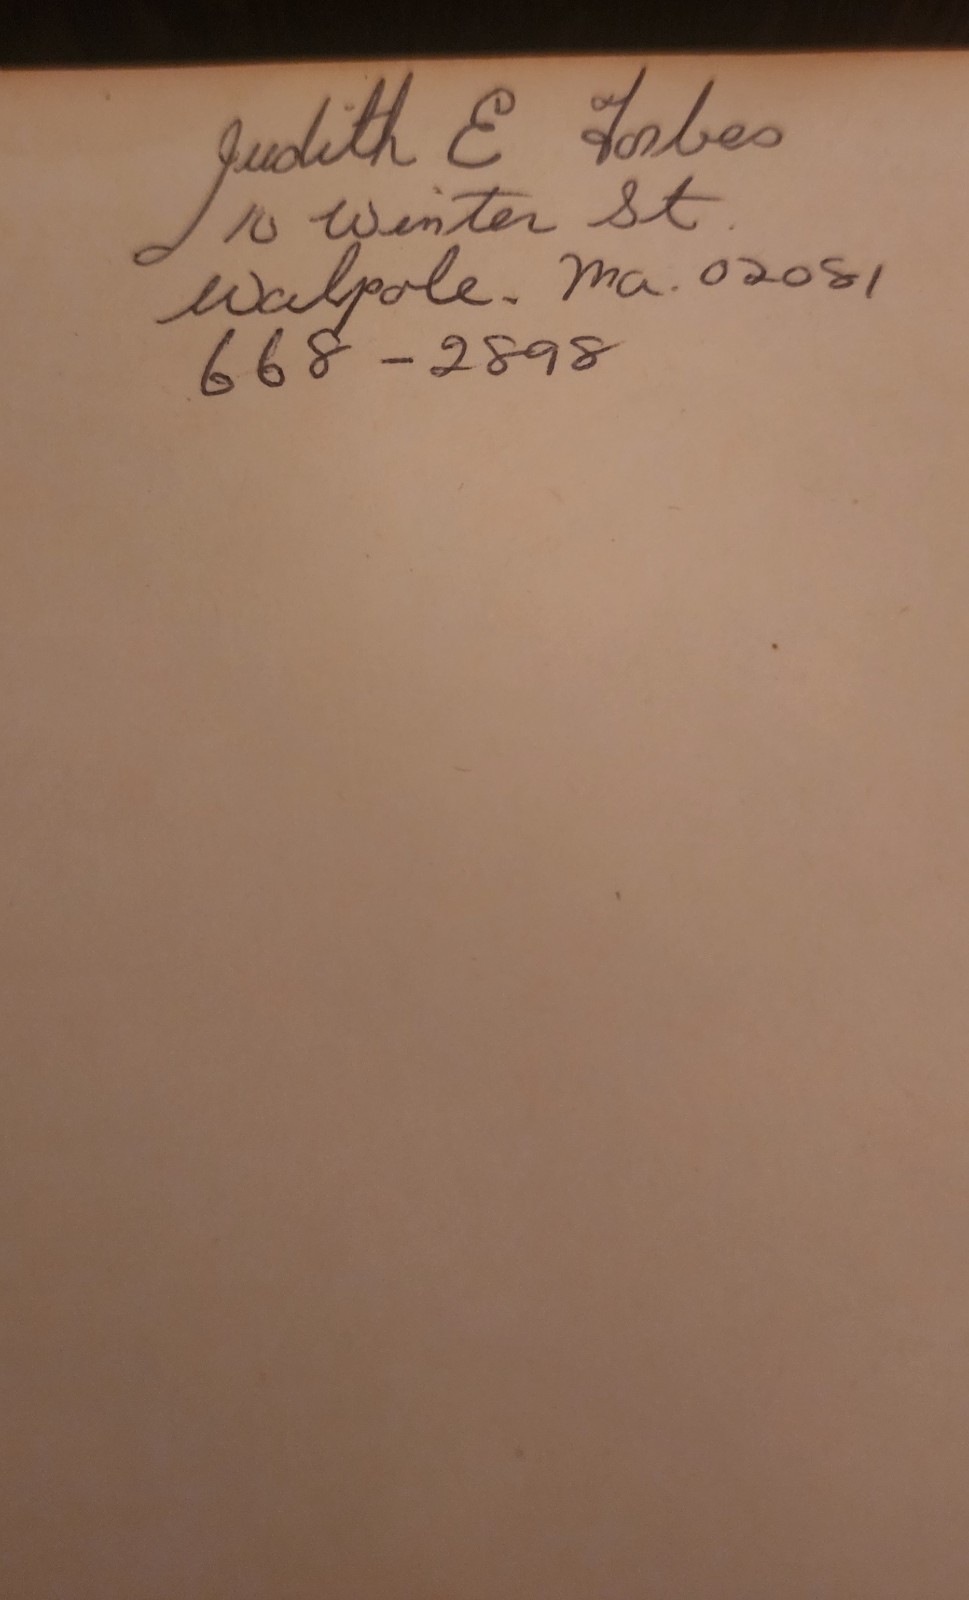 Judith E Forbes
10 Winter St.
Walpole. Ma. 02081
668-2898